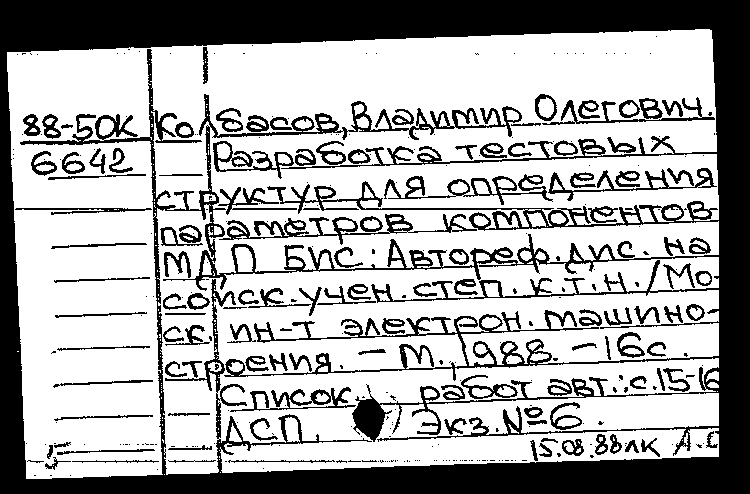 88-50К Колбасов, Владимир Олегович.
6642 Разработка тестовых
структур для определения
параметров компонентов
МДП БИС: Автореф. дис. на
соиск. учен. степ. к.т.н. /Мо-
ск. ин-т электрон. машино-
строения. - М., 1988. - 16с.
Список работ авт.: с.15-16
ДСП. Экз. №6.
5 15.08.88 ЛК А.С